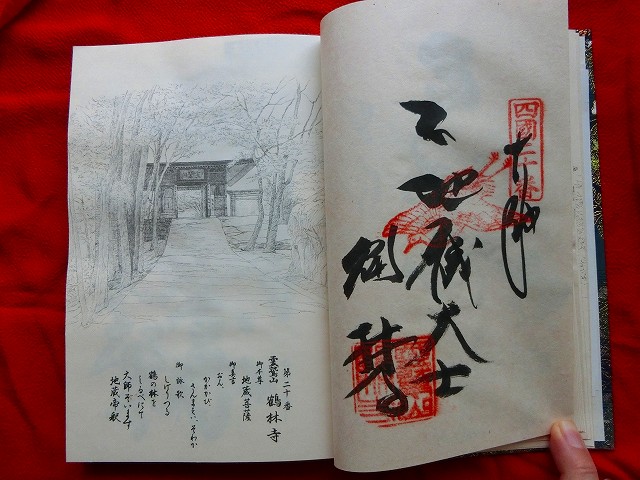 四國二十番
地蔵大士
第二十番
霊鷲山 鶴林寺
御本尊
地蔵菩薩
御真言
おん、
かかかび
さんまえい そわか
御詠歌
しげりつる
鶴の林を
しるべにて
大師ぞいます
地蔵帝釈